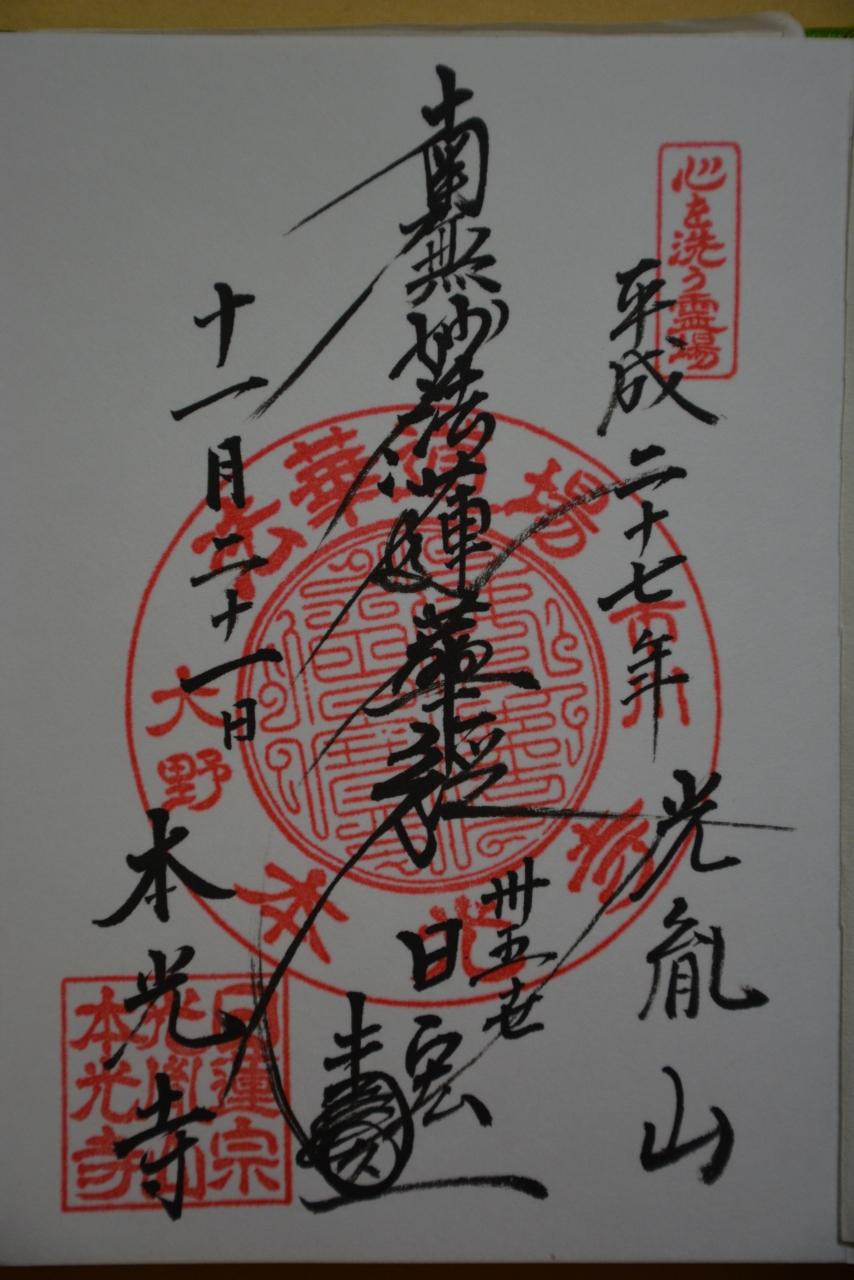 心を洗う霊場
平成二十七年
光胤山
南無妙法蓮華経
卅五世
日宏
十一月二十一日
本光寺
法華道場
市川
大野
日蓮宗
光胤山
本光寺